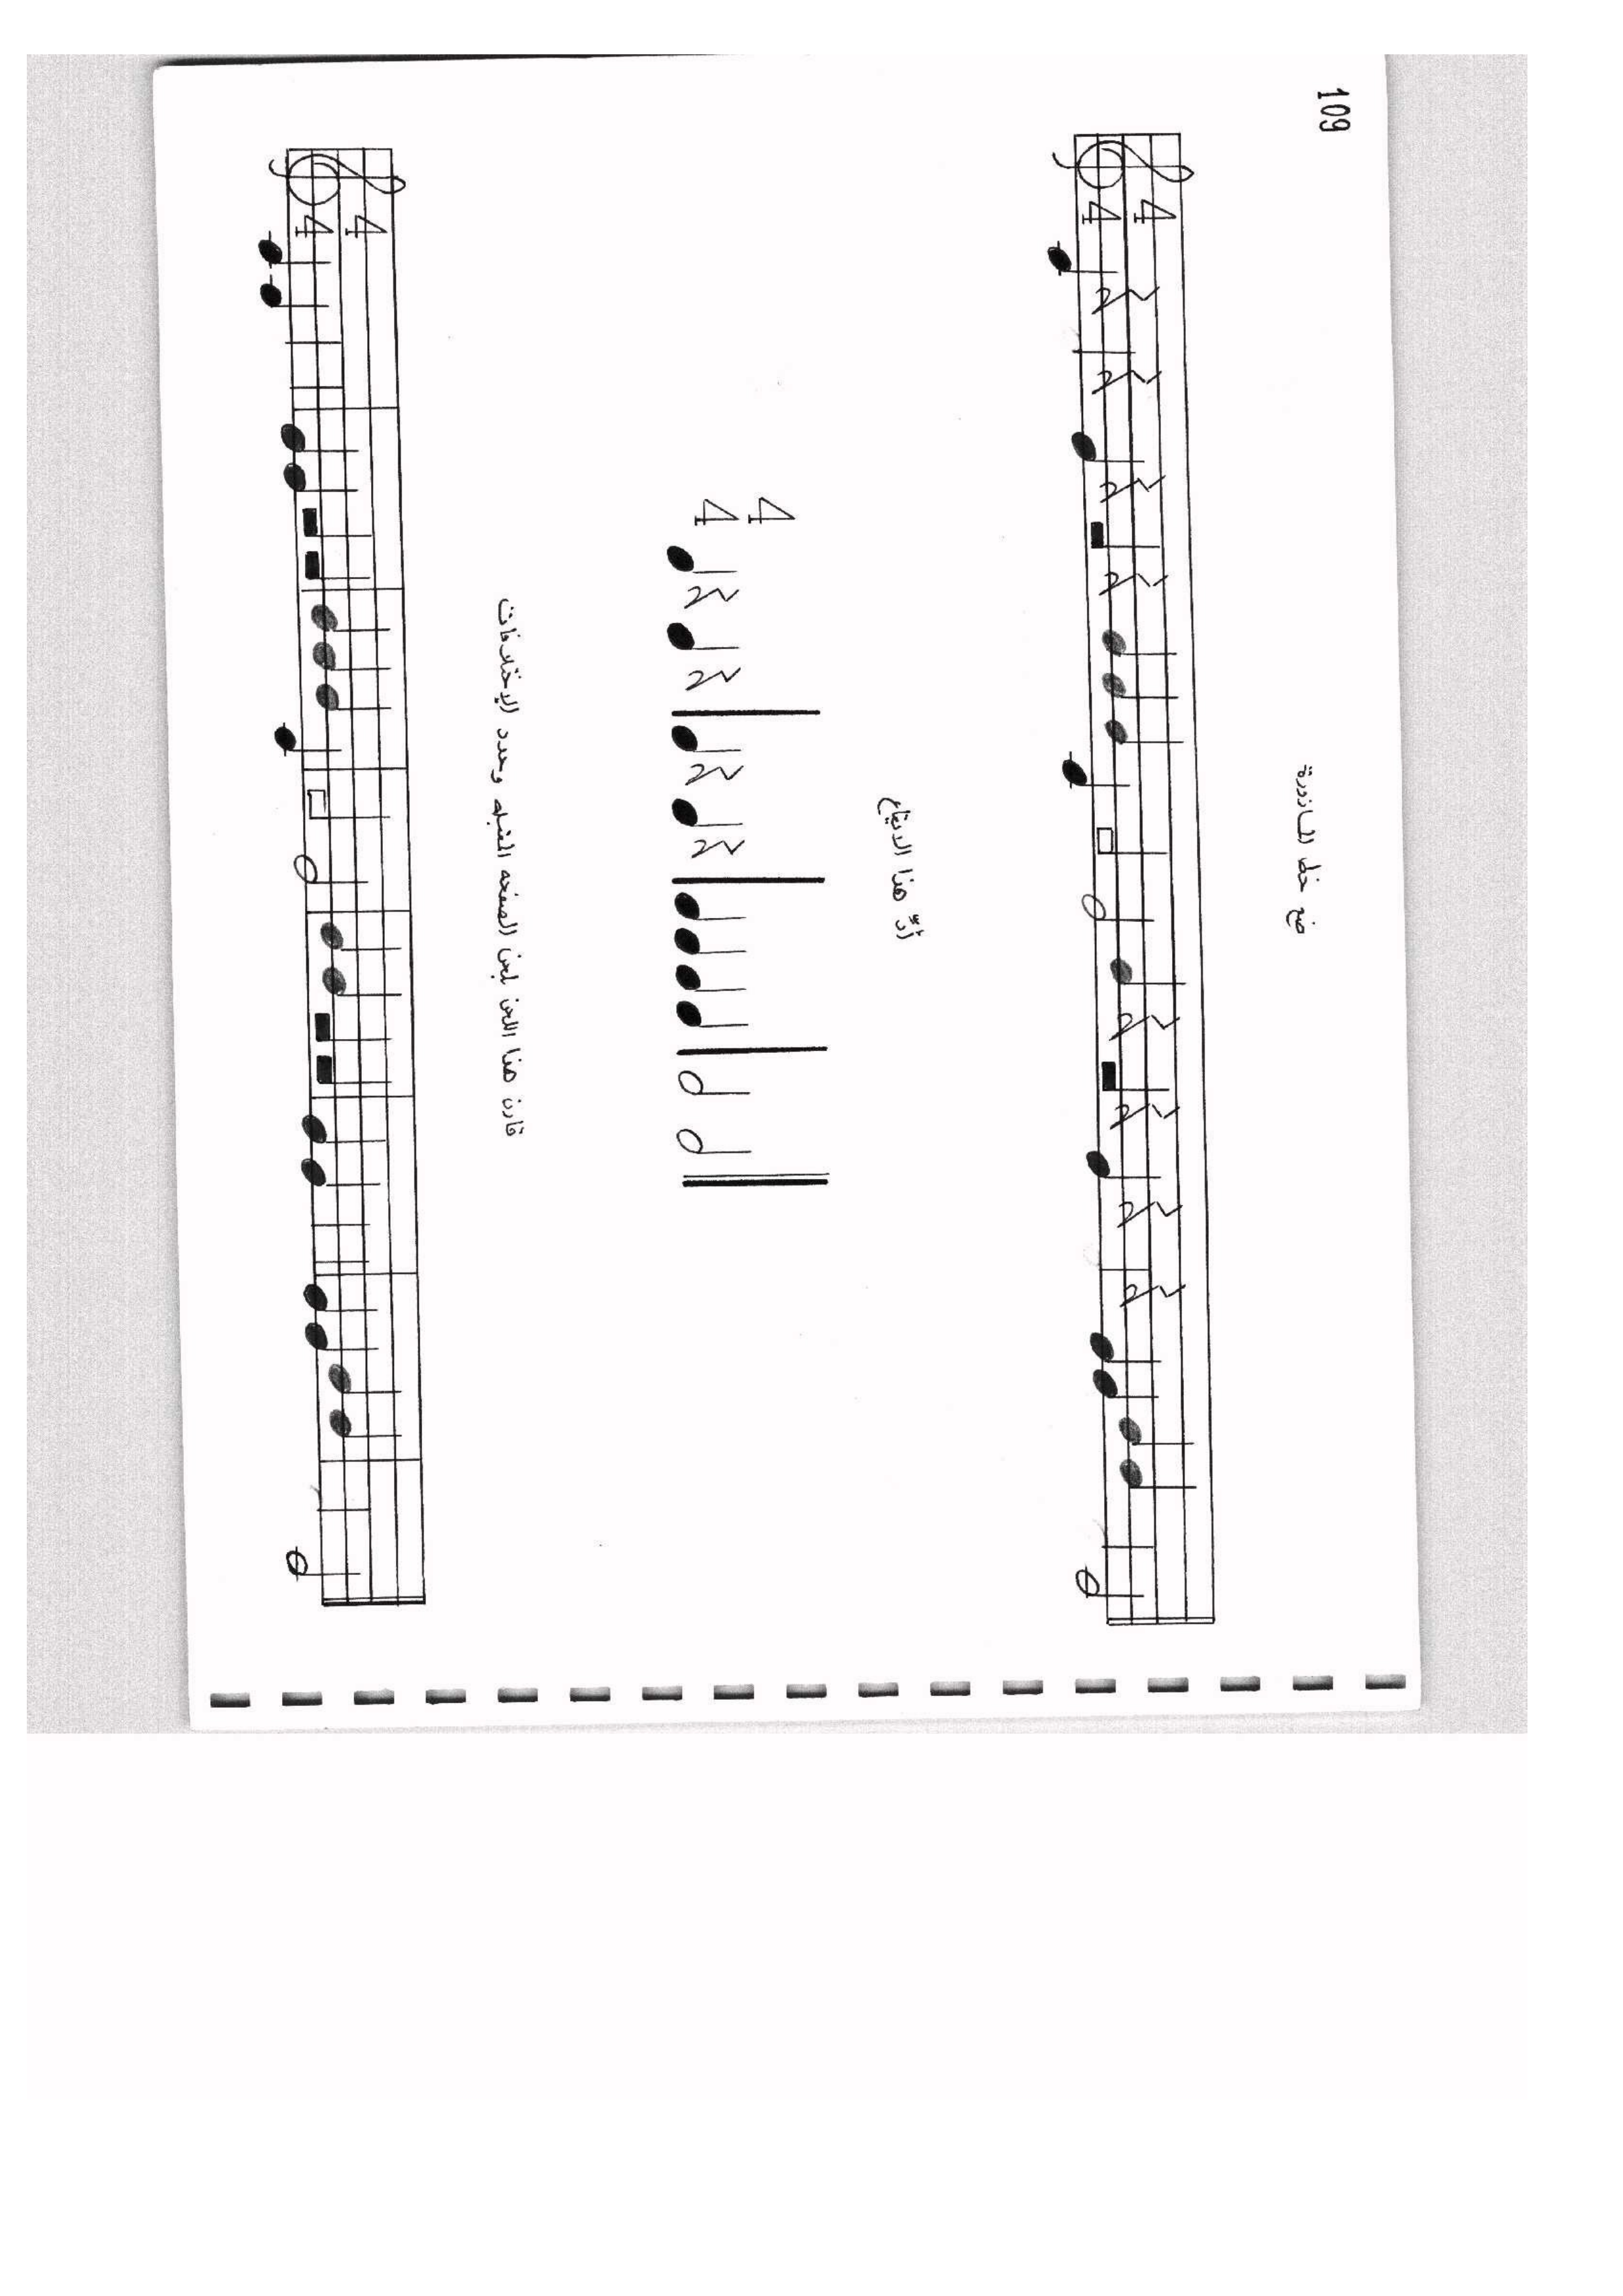 109
ضع خط المازورة
4
4
أدّ هذا الايقاع
4
4
قارن هذا اللحن بلحن الصفحه المقبله وحدد الإختلافات
4
4